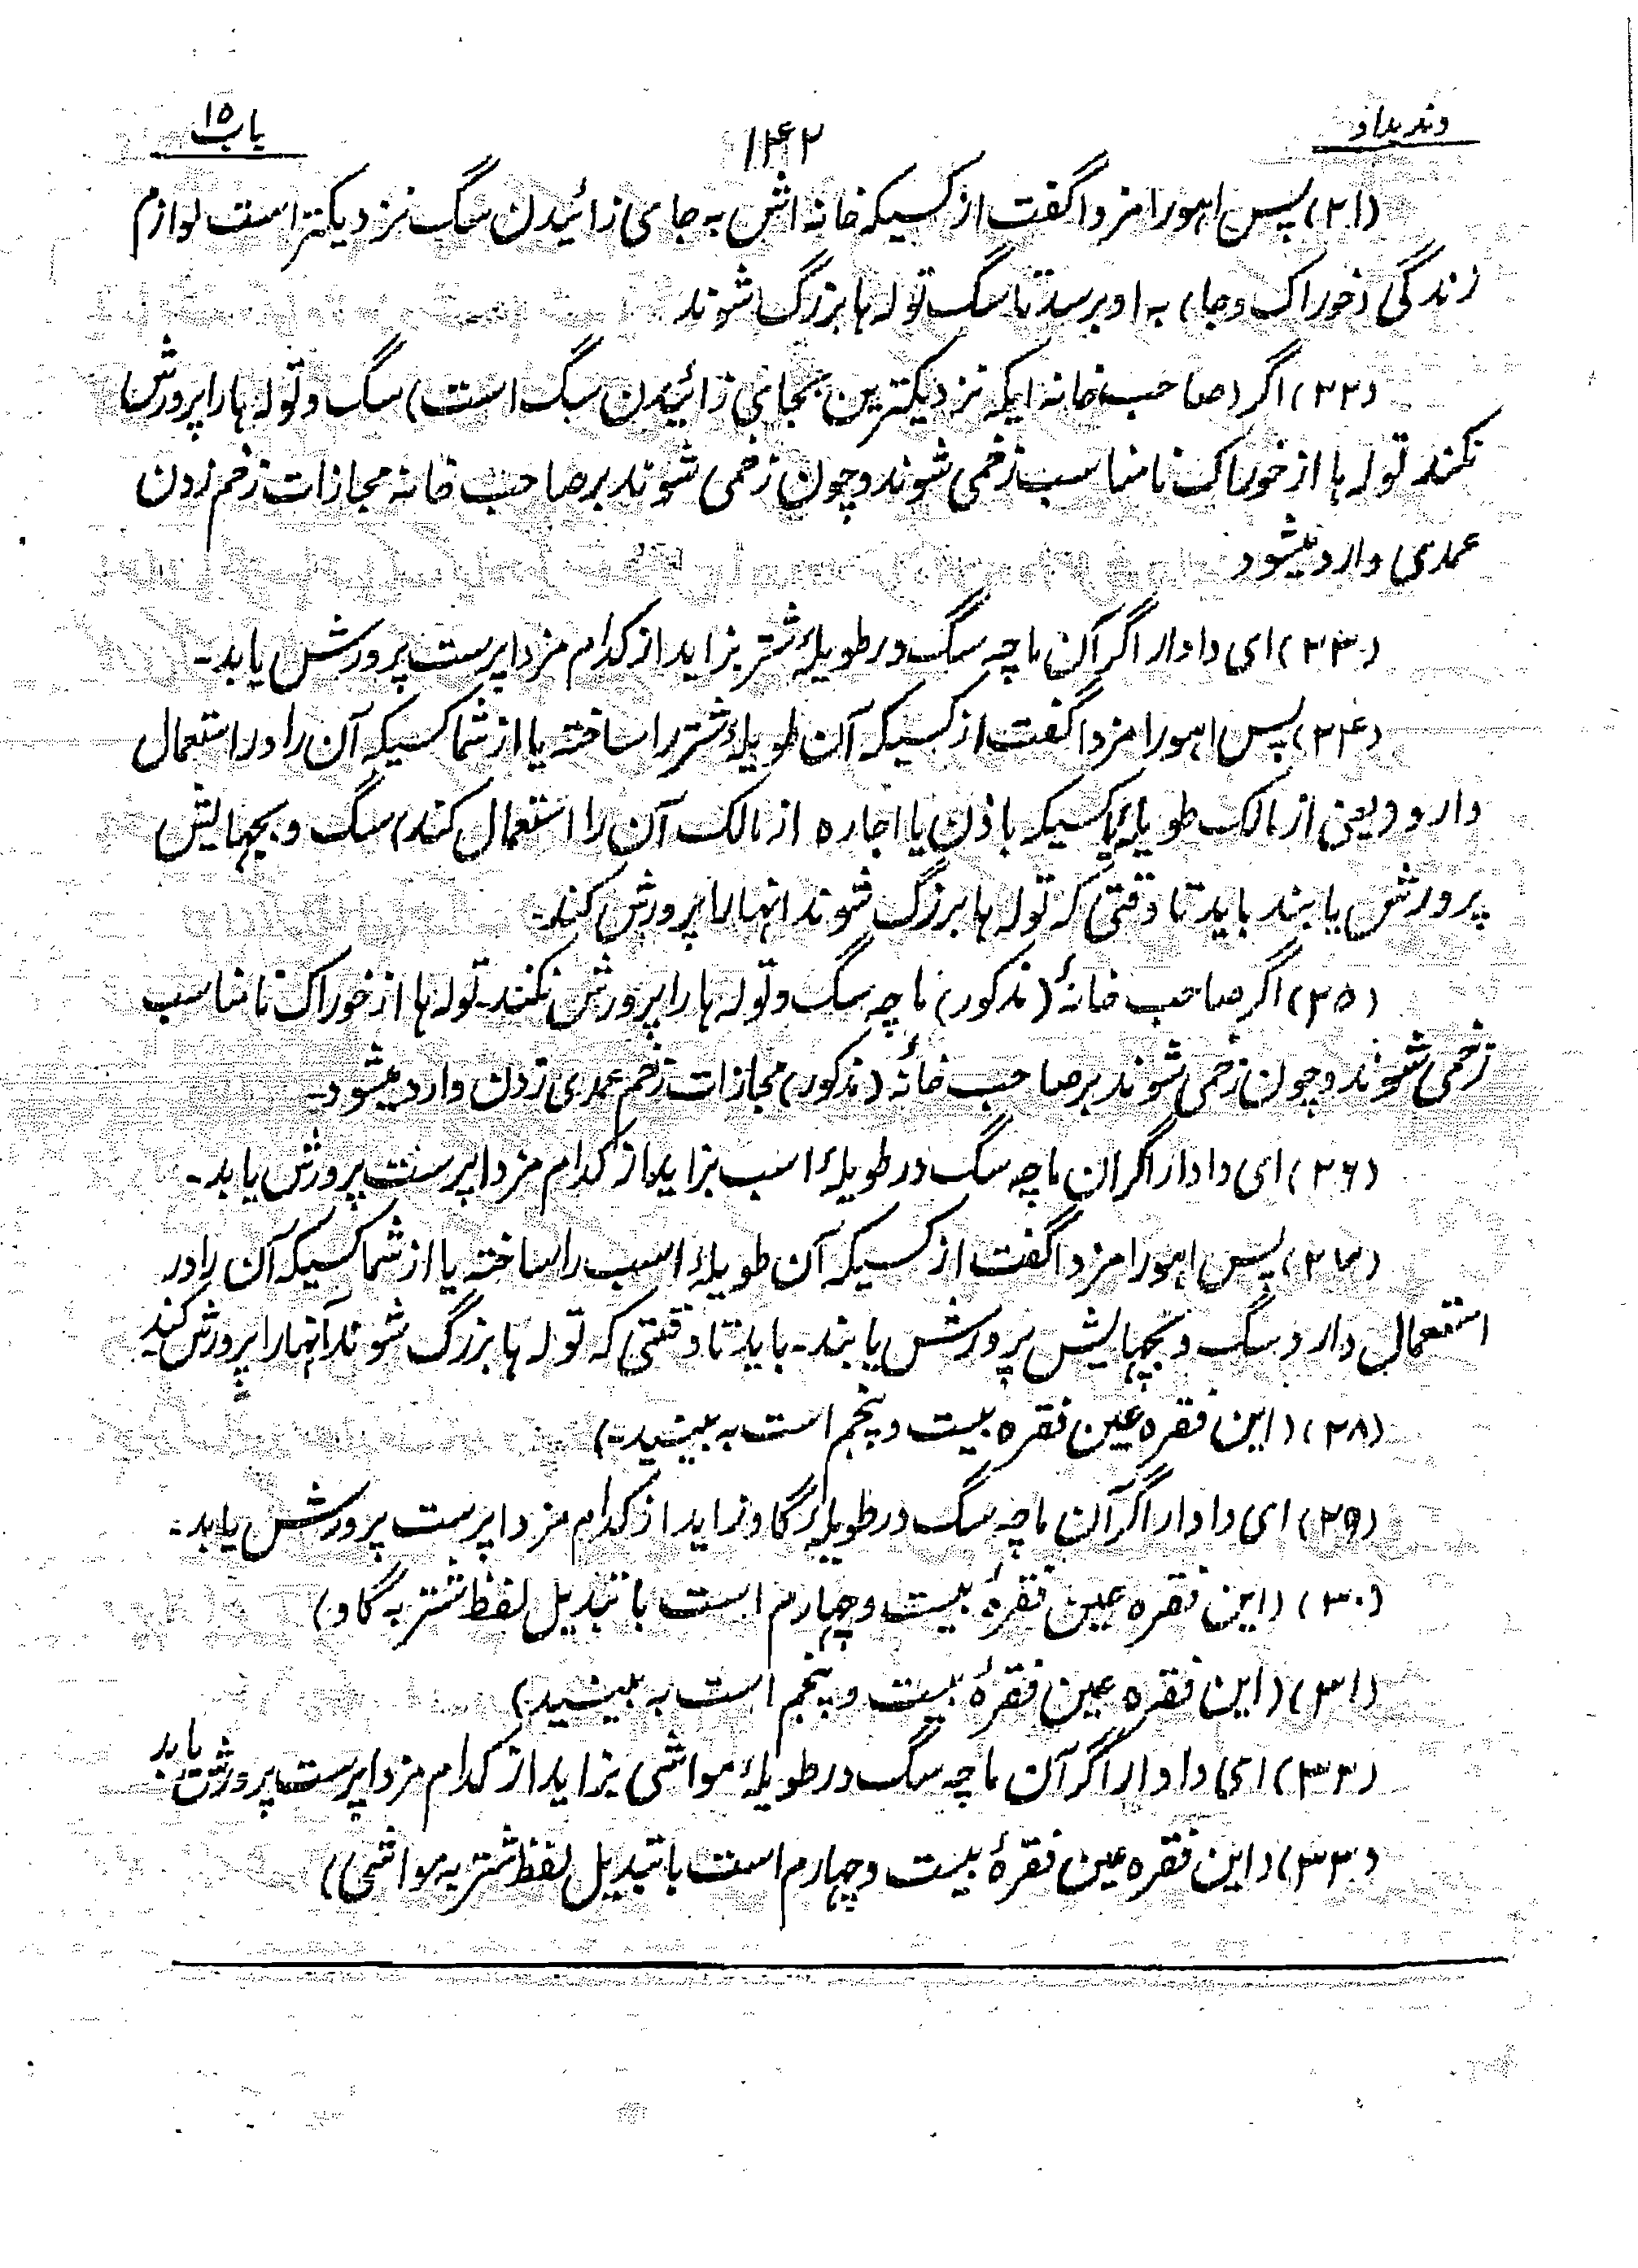 وندیداد
۱۴۲
باب ۱۵
(۲۱) پس اهورامزدا گفت از کسیکه خانه اش به جای زائیدن سگ نزدیکتر است لوازم
زندگی (خوراک و جا) به او برسد تا سگ توله ها بزرگ شوند
(۲۲) اگر (صاحب خانه ایکه نزدیکترین بجای زائیدن سگ است) سگ و توله ها را پرورش
نکند توله ها از خوراک نامناسب زخمی شوند و چون زخمی شوند بر صاحب خانه مجازات زخم زدن
عمدی وارد میشود
(۲۳) ای دادار اگر آن ماچه سگ در طویلهٔ شتر بزاید از کدام مزداپرست پرورش یابد-
(۲۴) پس اهورامزدا گفت از کسیکه آن طویلهٔ شتر را ساخته یا از شما کسیکه آن را در استعمال
دارد (یعنی از مالک طویله یا کسیکه با اذن یا اجاره از مالک آن را استعمال کند) سگ و بچهایش
پرورش یابند باید تا وقتی که توله ها بزرگ شوند انها را پرورش کند-
(۲۵) اگر صاحب خانهٔ (مذکور) ماچه سگ و توله ها را پرورش نکند- توله ها از خوراک نامناسب
زخمی شوند و چون زخمی شوند بر صاحب خانهٔ (مذکور) مجازات زخم عمدی زدن وارد میشود-
(۲۶) ای دادار اگر ان ماچه سگ در طویلهٔ اسب بزاید از کدام مزداپرست پرورش یابد-
(۲۷) پس اهورامزدا گفت از کسیکه آن طویلهٔ اسب را ساخته یا از شما کسیکه آن را در
استعمال دارد سگ و بچهایش پرورش یابند- باید تا وقتی که توله ها بزرگ شوند آنها را پرورش کند
(۲۸) (این فقره عین فقره بیست و پنجم است به بینید-)
(۲۹) ای دادار اگر آن ماچه سگ در طویله گاو بزاید از کدام مزداپرست پرورش یابد-
(۳۰) (این فقره عین فقرهٔ بیست و چهارم است با تبدیل لفظ شتر به گاو)
(۳۱) (این فقره عین فقرهٔ بیست و پنجم است به بینید)
(۳۲) ای دادار اگر آن ماچه سگ در طویلهٔ مواشی بزاید از کدام مزداپرست پرورش یابد
(۳۳) (این فقره عین فقرهٔ بیست و چهارم است با تبدیل لفظ شتر به مواشی)